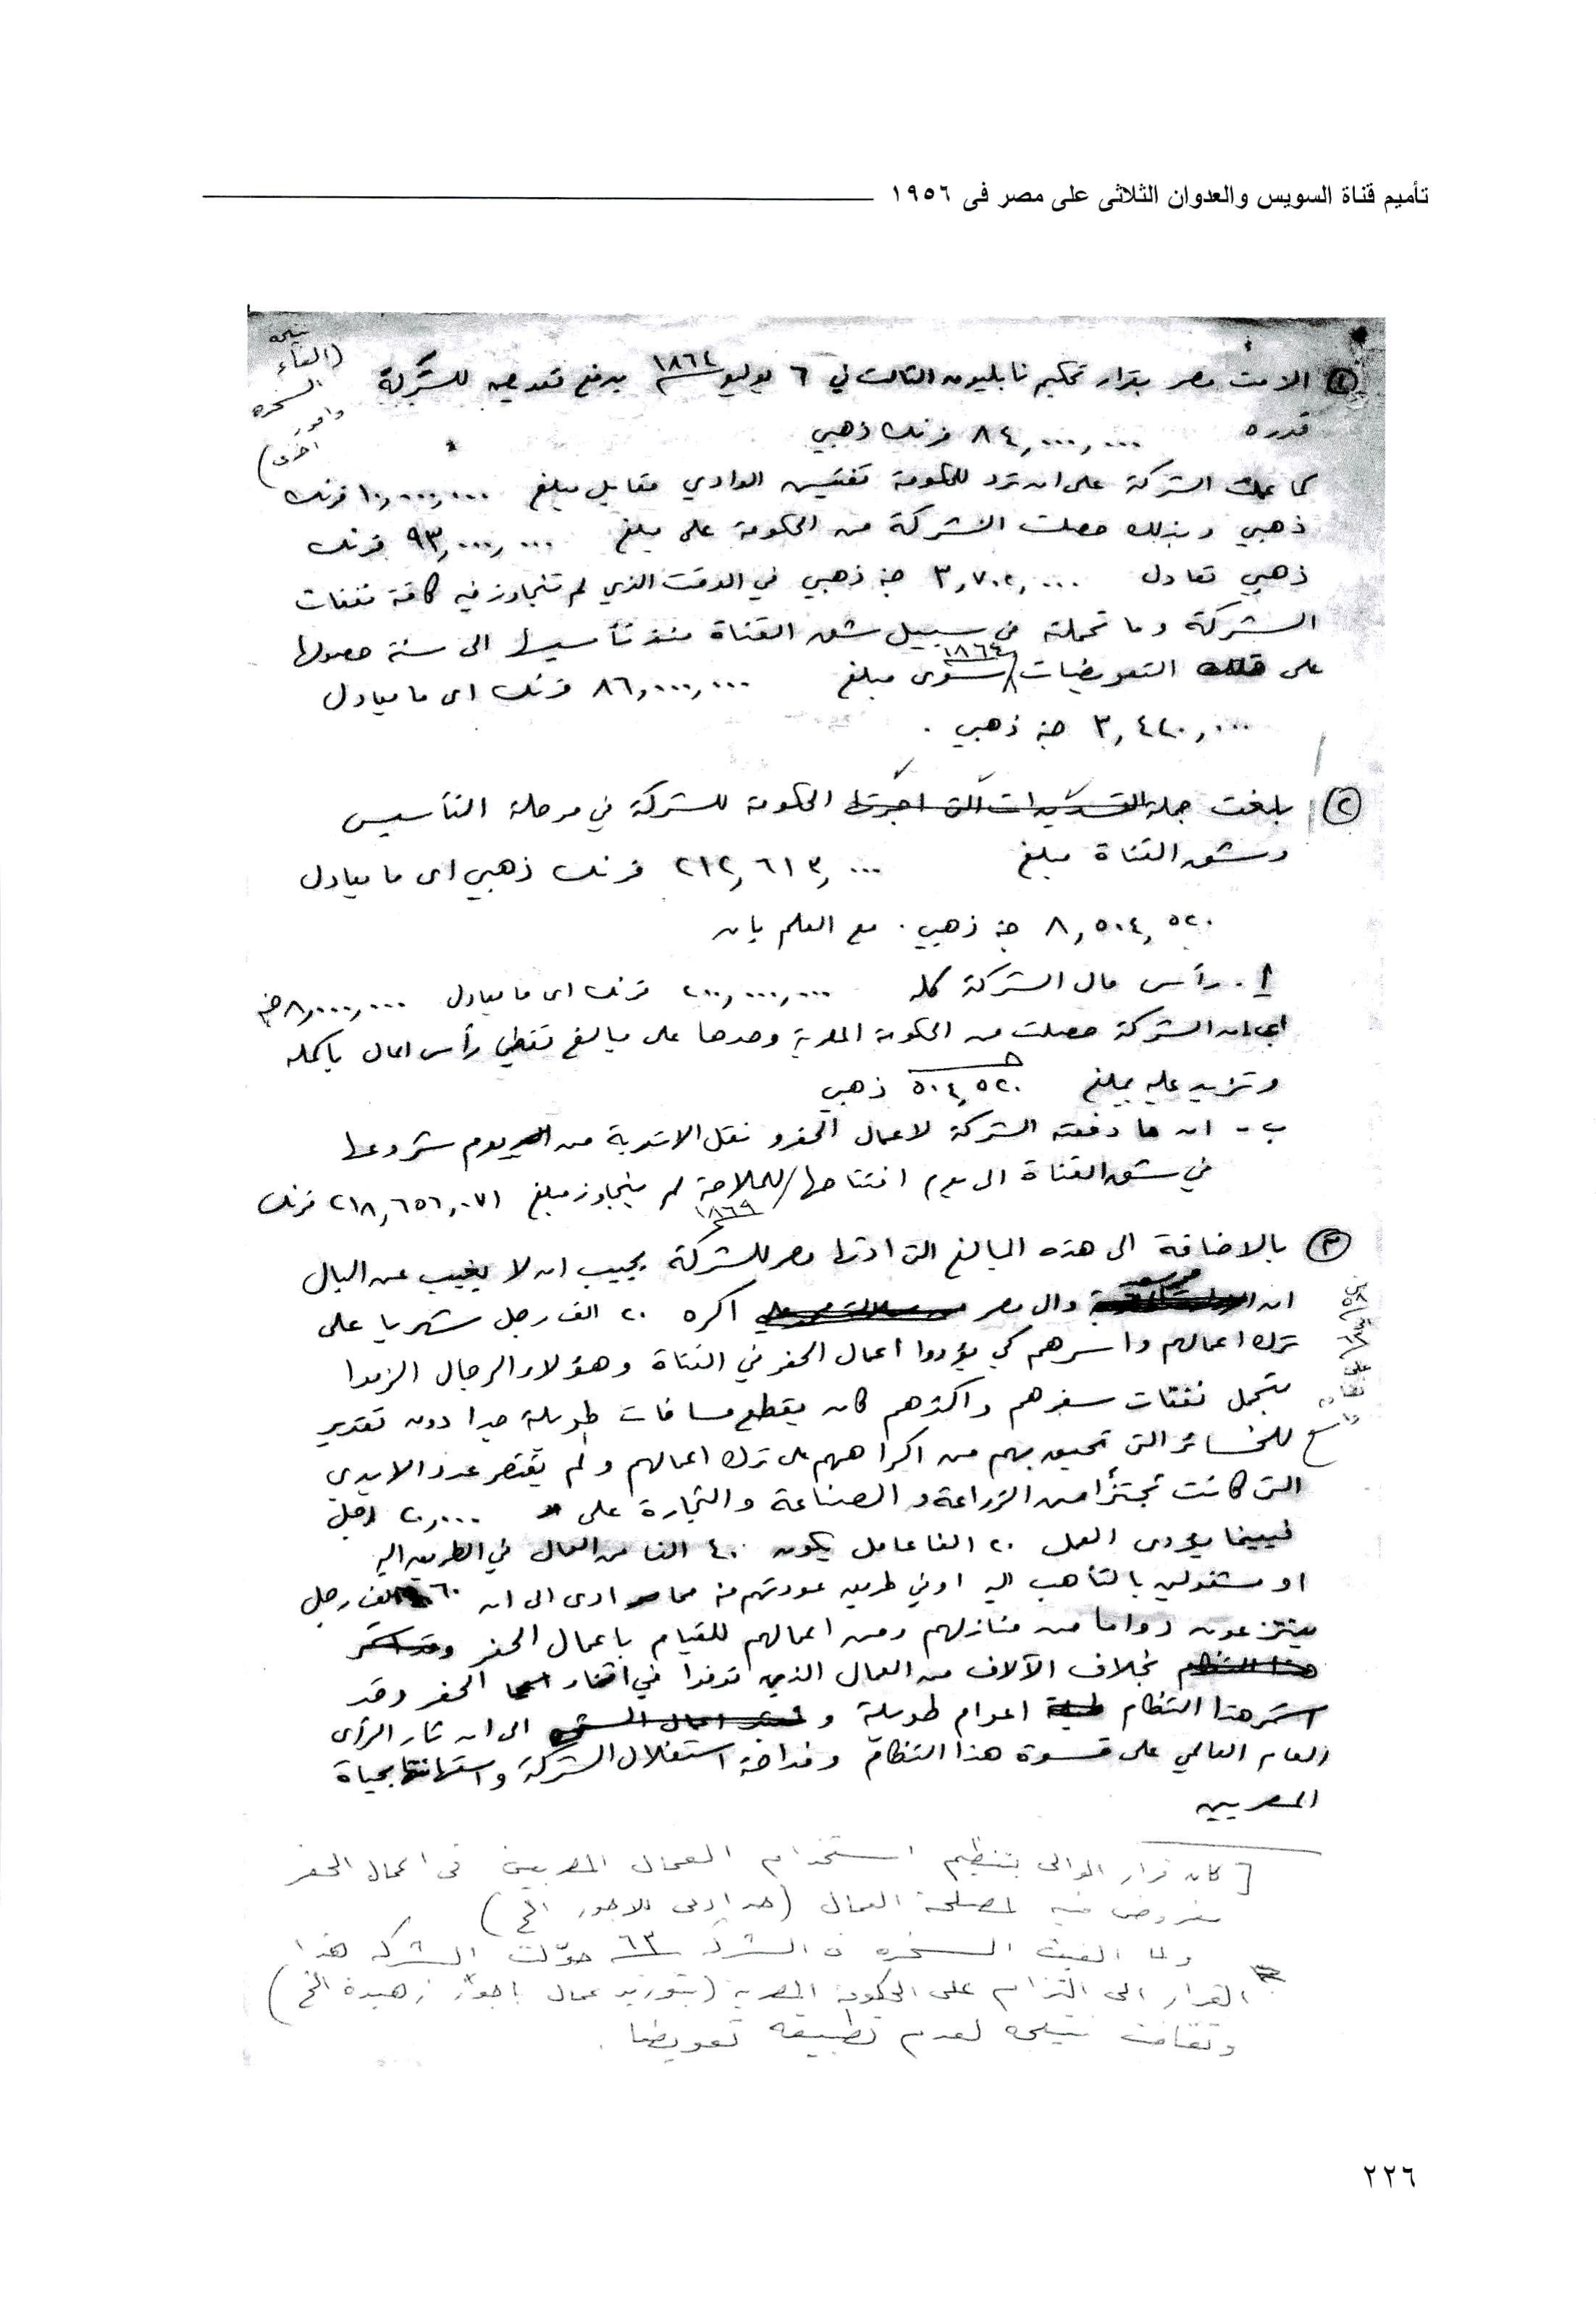 تأميم قناة السويس والعدوان الثلاثى على مصر فى ١٩٥٦
(١) الزمت مصر بقرار تحكيم نابليون الثالث في ٦ يوليو ١٨٦٤ بدفع تعويض للشركة
(نتيجة
الغاء
السخره
وامور
اخرى)
قدره ٨٤,٠٠٠,٠٠٠ فرنك ذهبي
كما عملت الشركة على ان ترد للحكومة تفتيش الوادي مقابل مبلغ ١٠,٠٠٠,٠٠٠ فرنك
ذهبي وبذلك حصلت الشركة من الحكومة على مبلغ ٩٣,٠٠٠,٠٠٠ فرنك
ذهبي تعادل جنيه ذهبي في الوقت الذي لم تتجاوز فيه كافة نفقات
الشركة وما تحملته في سبيل شق القناة منذ تأسيسها الى سنة حصولها
على تلك التعويضات ١٨٦٤ سوى مبلغ ٨٦,٠٠٠,٠٠٠ فرنك اى ما يعادل
٣,٤٤٠,٠٠٠ جنيه ذهبي .
(٢) بلغت جملة التسديدات التى اجرتها الحكومة للشركة في مرحلة التأسيس
وشق القناة مبلغ ٢١٢,٦١٣,٠٠٠ فرنك ذهبي اى ما يعادل
٨,٥٠٤,٥٢٠ جنيه ذهبي . مع العلم بان
أ - رأس مال الشركة كله ٢٠٠,٠٠٠,٠٠٠ فرنك اى ما يعادل ٨,٠٠٠,٠٠٠ جنيه
اى ان الشركة حصلت من الحكومة المصرية وحدها على مبالغ تغطي رأس المال باكمله
وتزيد عليه بمبلغ ٥٠٤,٥٢٠ ذهبي
ب - ان ما دفعته الشركة لاعمال الحفر و نقل الاتربة من يوم شروعها
في شق القناة الى يوم افتتاحها للملاحة ١٨٦٩ لم يتجاوز مبلغ ٢١٨,٦٥٦,٠٧١ فرنك
(٣) بالاضافة الى هذه المبالغ التى ادتها مصر للشركة يجب ان لا يغيب عن البال
ان والى مصر اكره ٢٠ الف رجل شهريا على
ترك اعمالهم واسرهم كي يؤدوا اعمال الحفر في القناة وهؤلاء الرجال الزموا
بتحمل نفقات سفرهم واكثرهم كان يقطع مسافات طويلة جدا دون تقدير
للخسائر التى تحيق بهم من اكراههم على ترك اعمالهم ولم يقتصر عدد الايدى
التى كانت تجتزأ من الزراعة و الصناعة والتجارة على ٢٠,٠٠٠ رجل
فبينما يؤدى العمل ٢٠ الفا عامل يكون ٤٠ الفا من العمال في الطريق اليه
او مشغولين بالتأهب اليه او في طريق عودتهم منه مما ادى الى ان ٦٠ الف رجل
ينتزعون دواما من منازلهم ومن اعمالهم للقيام باعمال الحفر
هذا النظام بخلاف الآلاف من العمال الذين توفوا في اثناء الحفر وقد
استمر هذا النظام اعوام طويلة و الى ان ثار الرأى
العام العالمي على قسوة هذا النظام وفداحة استغلال الشركة واستهانتها بحياة
المصريين
[ كان قرار الوالى بتنظيم استخدام العمال المصريين فى اعمال الحفر
مفروض فيه لمصلحة العمال (حد ادنى للاجور الخ)
ولما الغيت السخره ٦٣ حوّلت الشركه هذا
القرار الى التزام على الحكومه المصريه (بتوريد عمال باجور زهيدة الخ)
وتقاضت نتيجه لعدم تطبيقه تعويضا .
٢٢٦